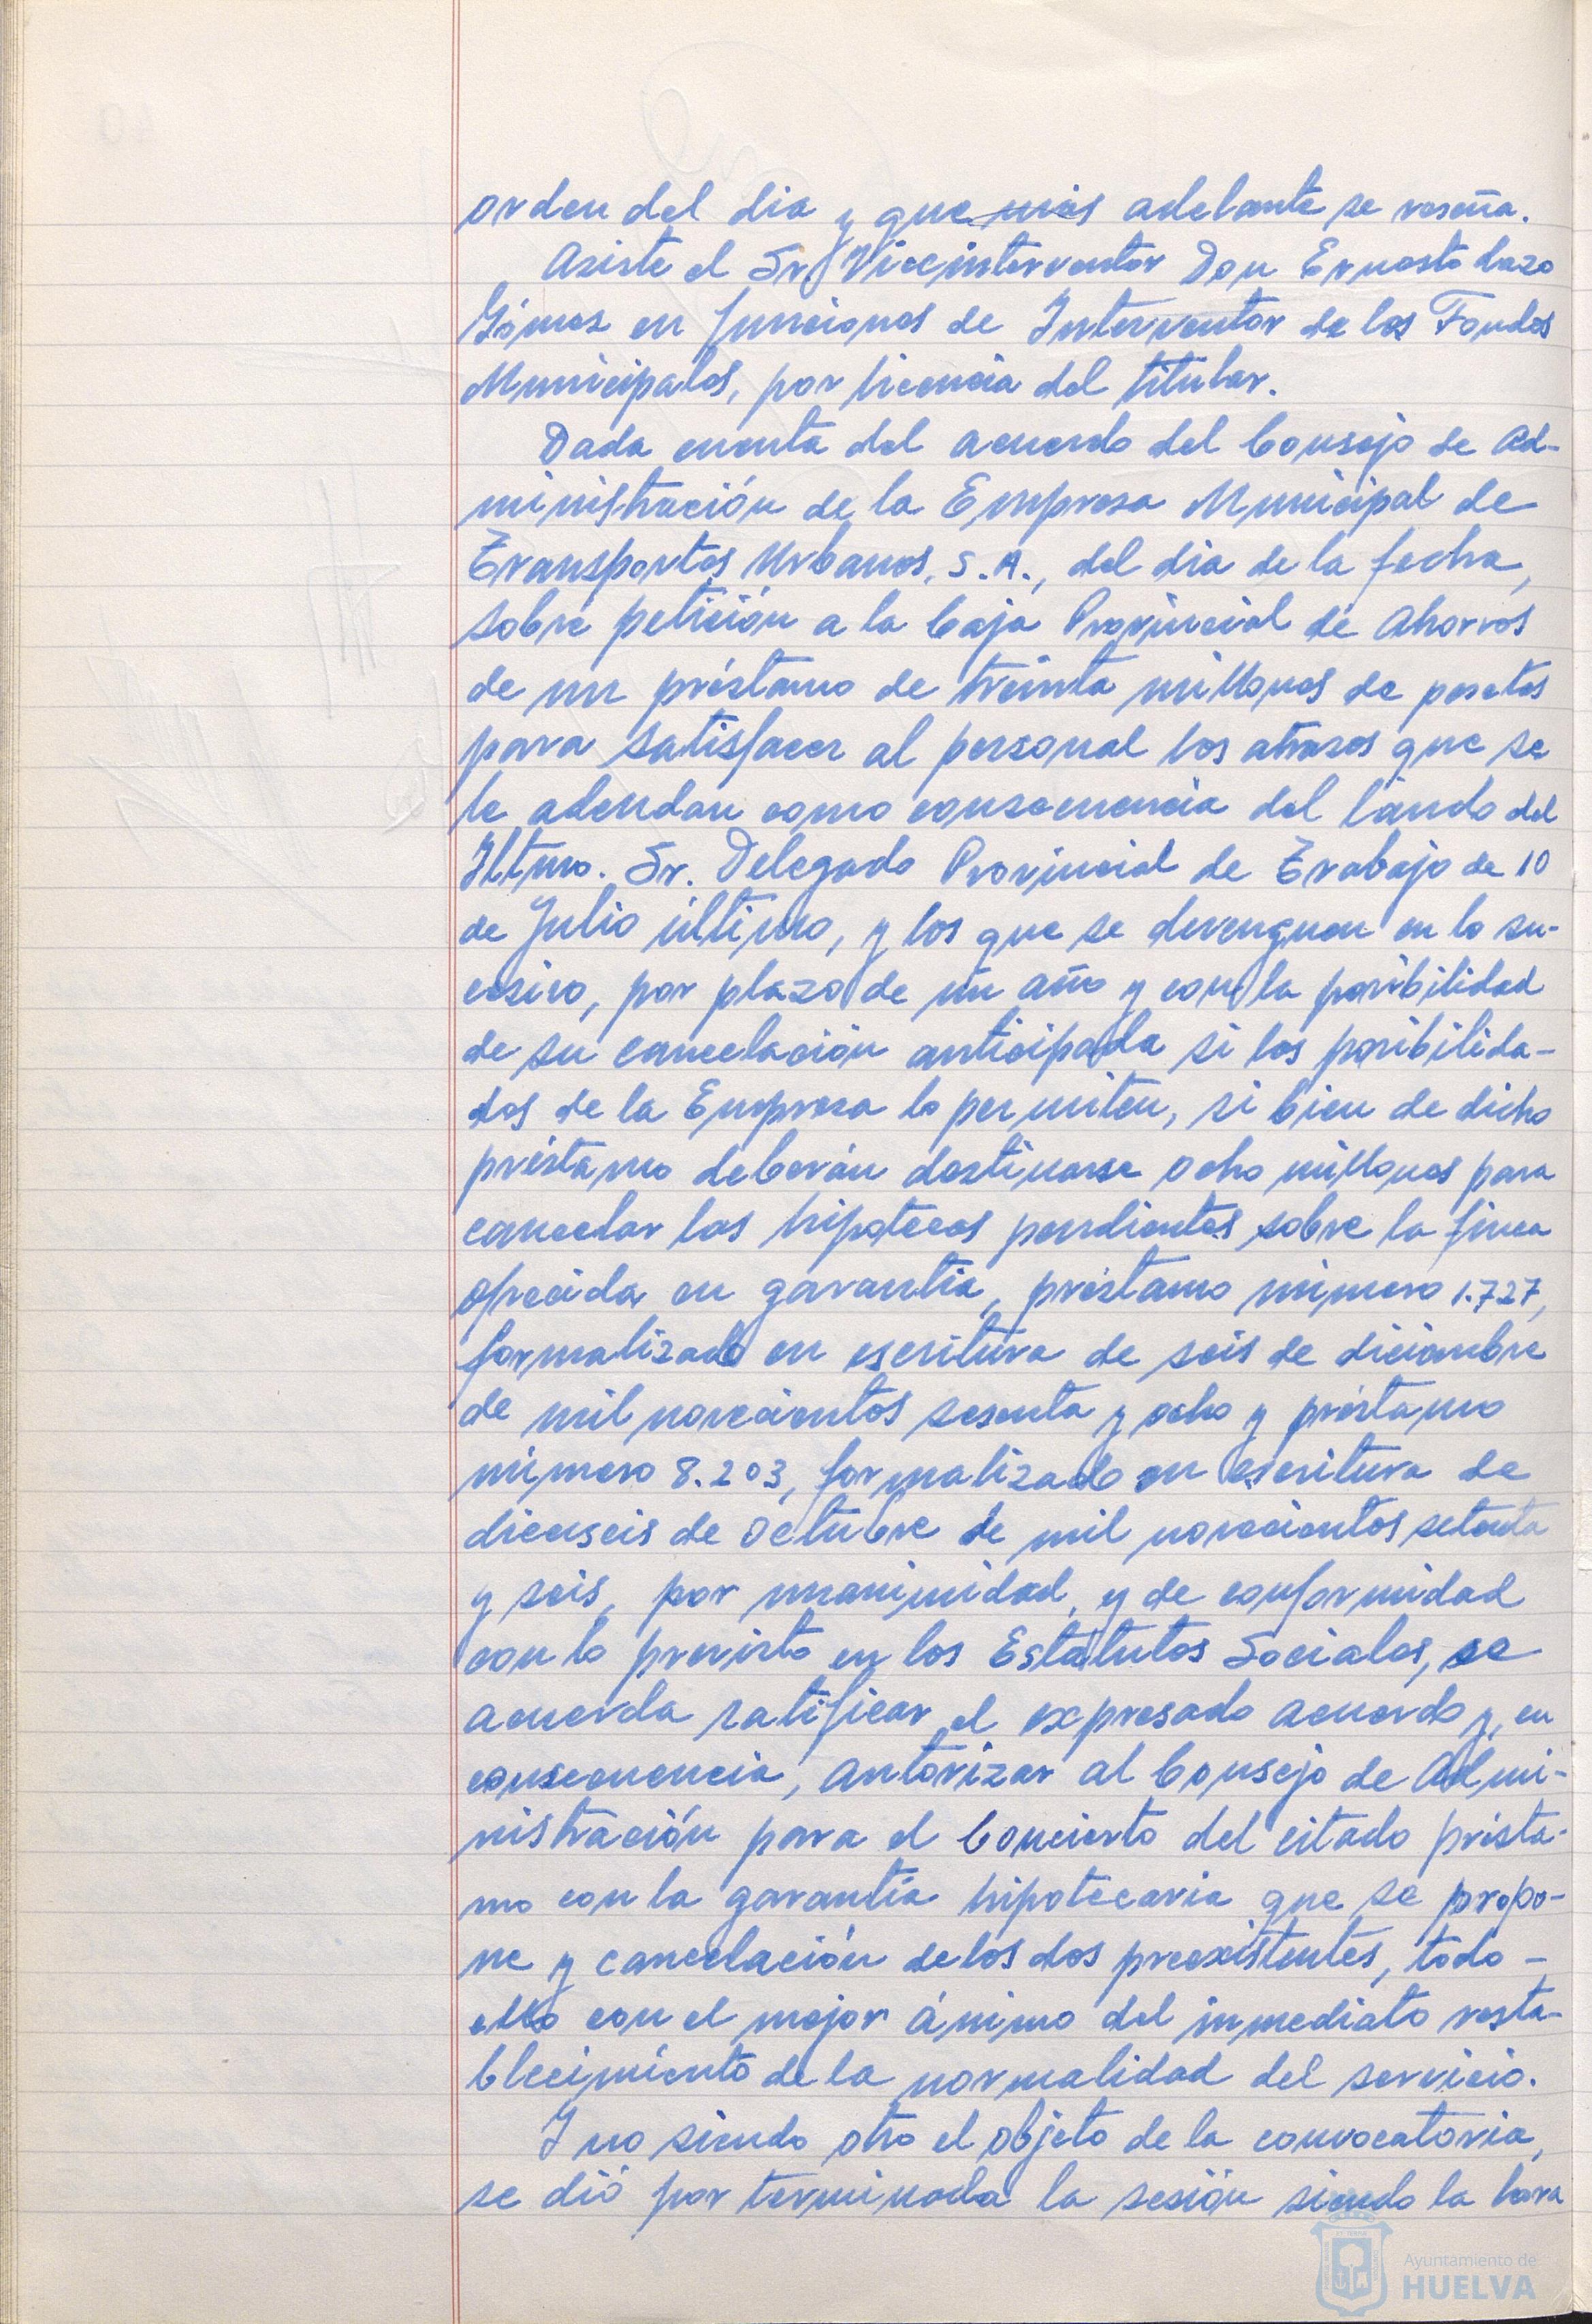 orden del dia y que más adelante se reseña.
Asiste el Sr. Viceinterventor Don Ernesto Lazo
Gómez en funciones de Interventor de los Fondos
Municipales, por licencia del titular.
Dada cuenta del acuerdo del Consejo de Ad-
ministración de la Empresa Municipal de
Transportes Urbanos, S.A., del dia de la fecha,
sobre petición a la Caja Provincial de Ahorros
de un préstamo de treinta millones de pesetas
para satisfacer al personal los atrasos que se
le adeudan como consecuencia del laudo del
Iltmo. Sr. Delegado Provincial de Trabajo de 10
de Julio último, y los que se devenguen en lo su-
cesivo, por plazo de un año y con la posibilidad
de su cancelación anticipada si las posibilida-
des de la Empresa lo permiten, si bien de dicho
préstamo deberán destinarse ocho millones para
cancelar las hipotecas pendientes sobre la finca
ofrecida en garantía, préstamo número 1.727,
formalizado en escritura de seis de diciembre
de mil novecientos sesenta y ocho y préstamo
número 8.203, formalizado en escritura de
dieciseis de octubre de mil novecientos setenta
y seis, por unanimidad, y de conformidad
con lo previsto en los Estatutos Sociales, se
acuerda ratificar el expresado acuerdo y, en
consecuencia, autorizar al Consejo de Admi-
nistración para el Concierto del citado présta-
mo con la garantía hipotecaria que se propo-
ne y cancelación de los dos preexistentes, todo -
ello con el mejor ánimo del inmediato resta-
blecimiento de la normalidad del servicio.
Y no siendo otro el objeto de la convocatoria,
se dió por terminada la sesión siendo la hora
Ayuntamiento de
HUELVA